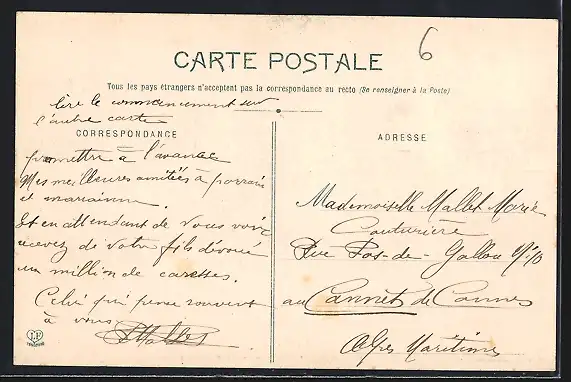 6
CARTE POSTALE
Tous les pays étrangers n'acceptent pas la correspondance au recto (Se renseigner à la Poste)
lire le commencement sur
l'autre carte
CORRESPONDANCE
promettre à l'avance
Mes meilleures amitiés à parrain
et marraine.
Et en attendant de vous voir
recevez de votre fils dévoué
un million de caresses.
Celui qui pense souvent
à vous
EMallet
ADRESSE
Mademoiselle Mallet Marie
Couturière
Rue Pas-de-
au Cannet de Cannes
Alpes Maritimes